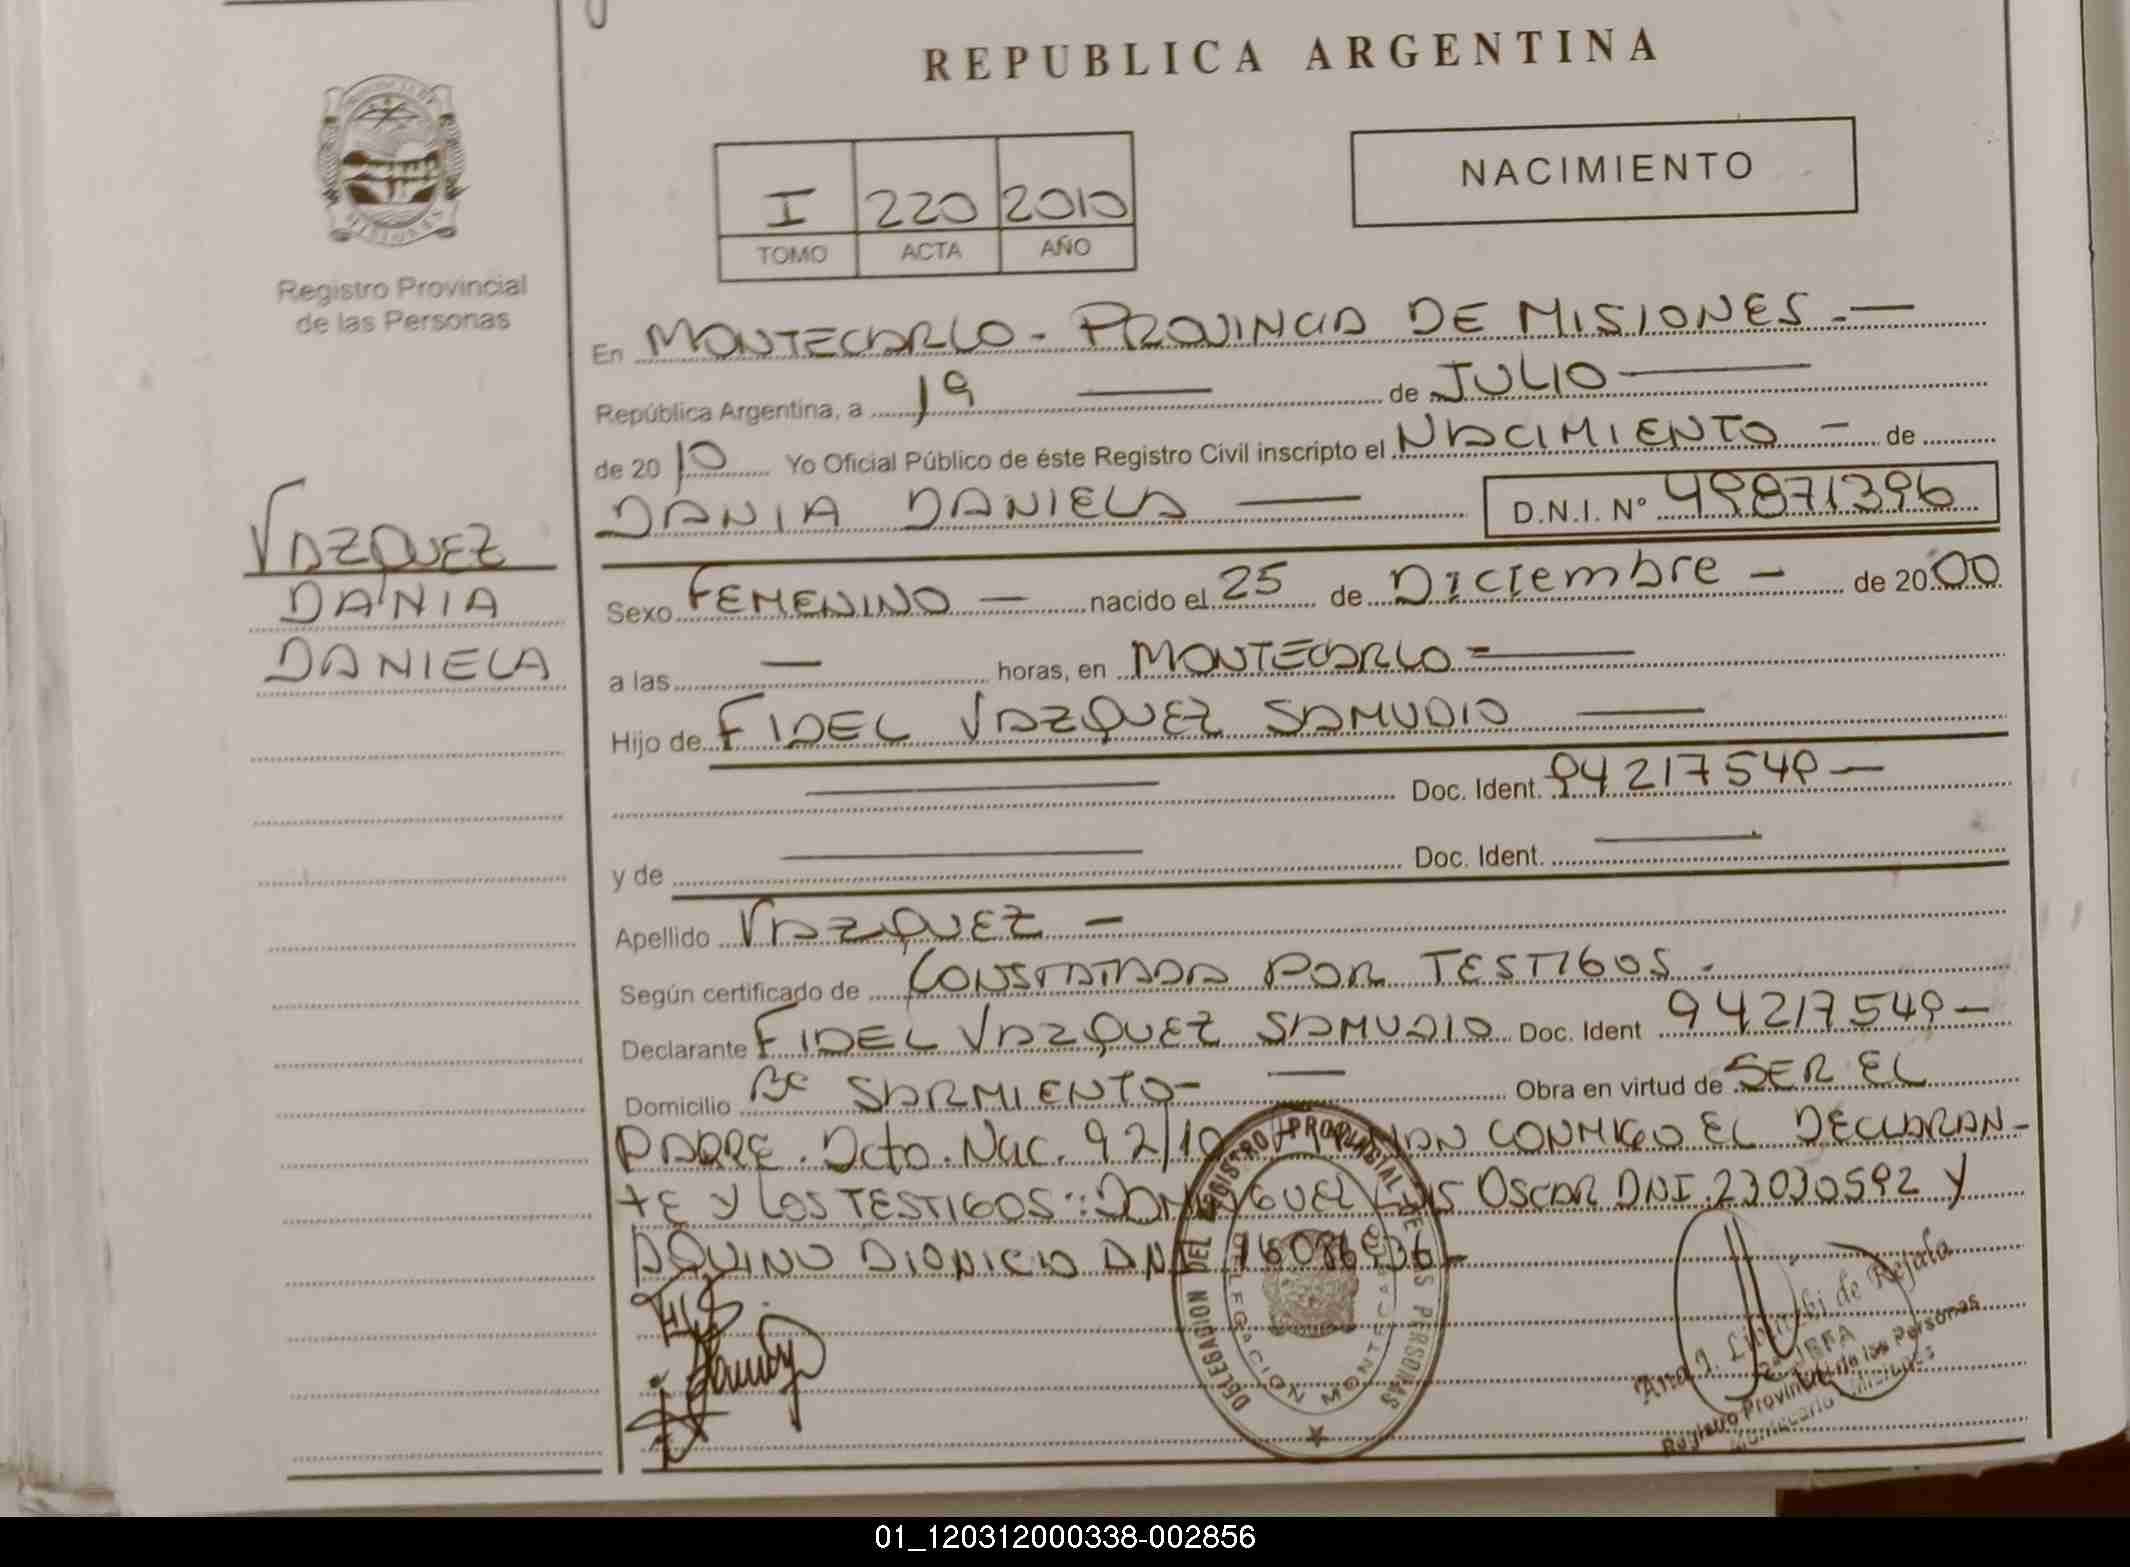 REPUBLICA ARGENTINA
NACIMIENTO
I 220 2010
TOMO ACTA AÑO
Registro Provincial
de las Personas
En MONTECARLO - PROVINCIA DE MISIONES.-
República Argentina, a 19 de JULIO
de 2010 Yo Oficial Público de éste Registro Civil inscripto el NACIMIENTO - de
DANIA DANIELA D.N.I. Nº 49871396
VAZQUEZ
DANIA
DANIELA
Sexo FEMENINO - nacido el 25 de Diciembre - de 2000
a las - horas, en MONTECARLO -
Hijo de FIDEL VAZQUEZ SAMUDIO
Doc. Ident. 94217549 -
y de Doc. Ident.
Apellido VAZQUEZ -
Según certificado de CONSTATADA POR TESTIGOS.
Declarante FIDEL VAZQUEZ SAMUDIO Doc. Ident 94217549 -
Domicilio Bº SARMIENTO - Obra en virtud de SER EL
PADRE. Dcto. Nac. 92/10 CONMIGO EL DECLARAN-
TE Y LOS TESTIGOS: OSCAR DNI 23030592 Y
AQUINO DIONICIO DNI
DELEGACION DEL REGISTRO PROVINCIAL DE LAS PERSONAS
DELEGACION MONTECARLO
de Rejala
JEFA
Registro Provincial de las Personas
Montecarlo Misiones
01_120312000338-002856